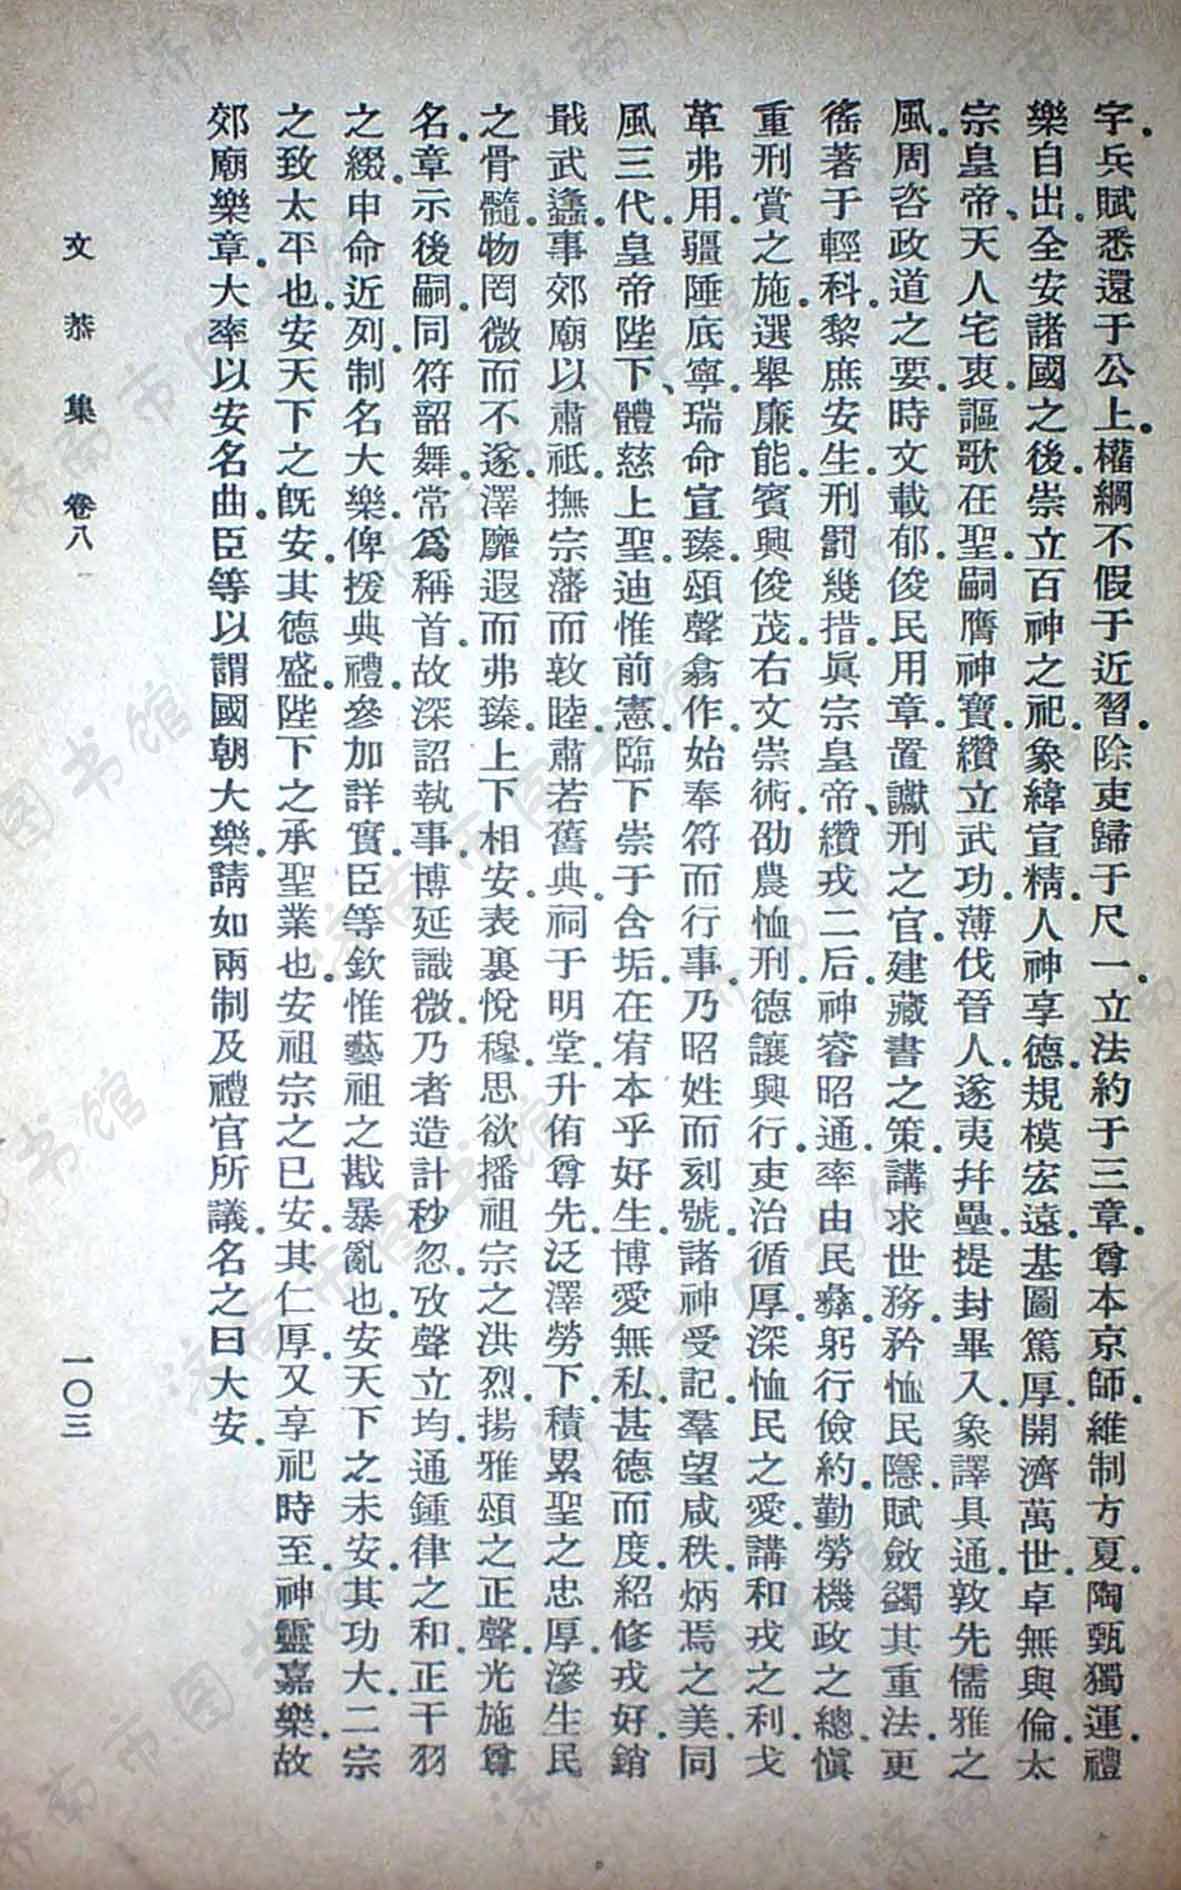 字。兵賦悉還于公上。權綱不假于近習。除吏歸于尺一。立法約于三章。尊本京師。維制方夏。陶甄獨運。禮
樂自出。全安諸國之後。崇立百神之祀。象緯宣精。人神享德。規模宏遠。基圖篤厚。開濟萬世。卓無與倫。太
宗皇帝、天人宅衷。謳歌在聖。嗣膺神寶。纘立武功。薄伐晉人。遂夷幷壘。提封畢入。象譯具通。敦先儒雅之
風。周咨政道之要。時文載郁。俊民用章。置讞刑之官。建藏書之策。講求世務。矜恤民隱。賦斂蠲其重法。更
徭著于輕科。黎庶安生。刑罰幾措。眞宗皇帝、纘戎二后。神睿昭通。率由民彝。躬行儉約。勤勞機政之總。愼
重刑賞之施。選舉廉能。賓興俊茂。右文崇術。劭農恤刑。德讓興行。吏治循厚。深恤民之愛。講和戎之利。戈
革弗用。疆陲底寧。瑞命宣臻。頌聲翕作。始奉符而行事。乃昭姓而刻號。諸神受記。羣望咸秩。炳焉之美。同
風三代。皇帝陛下、體慈上聖。迪惟前憲。臨下崇于含垢。在宥本乎好生。博愛無私。甚德而度。紹修戎好。銷
戢武蠭。事郊廟以肅祇。撫宗藩而敦睦。肅若舊典。祠于明堂。升侑尊先。泛澤勞下。積累聖之忠厚。滲生民
之骨髓。物罔微而不遂。澤靡遐而弗臻。上下相安。表裏悅穆。思欲播祖宗之洪烈。揚雅頌之正聲。光施尊
名。章示後嗣。同符韶舞。常爲稱首。故深詔執事。博延識微。乃者造計秒忽。攷聲立均。通鍾律之和。正干羽
之綴。申命近列。制名大樂。俾援典禮。參加詳實。臣等欽惟藝祖之戡暴亂也。安天下之未安。其功大。二宗
之致太平也。安天下之旣安。其德盛。陛下之承聖業也。安祖宗之已安。其仁厚。又享祀時至。神靈嘉樂。故
郊廟樂章。大率以安名曲。臣等以謂國朝大樂。請如兩制及禮官所議。名之曰大安。
文恭集 卷八
一〇三